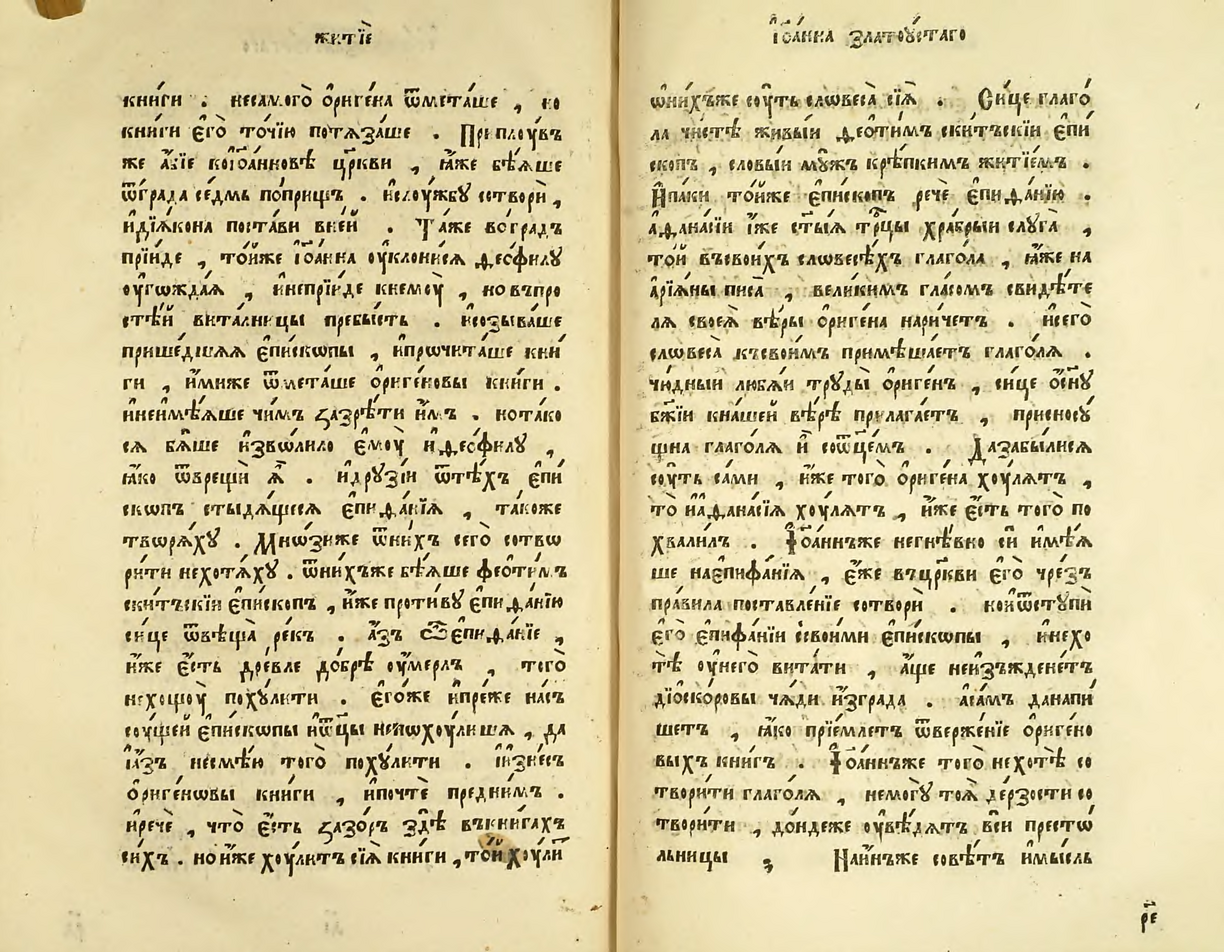 житїѐ
кни́ги . несамого̀ ѻ҆риге́на ѿмета́ше , но
кни́ги є҆го̀ то́чїю потѧза́ше . Приплꙋ́въ
же а҆́бїе коїѡа́нновѣ цр҃кви , ꙗ҆́же бѣѧ́ше
ѿгра́да се́дмь по́прищъ . ислꙋ́жбꙋ сотворѝ ,
идїѧ́кона поста́ви вне́й . Та́же во гра́дъ
прїи́де , то́йже їѡа́нна ᲂуклони́сѧ ѳео́филꙋ
ᲂугожда́ѧ , инепрїи́де кнемꙋ̀ , но въпро
стѣ́й вита́лницы пребы́сть . исозыва́ше
прише́дшаѧ є҆пи́скопы , ипрочита́ше кни́
ги , и҆́миже ѿмета́ше ѻ҆риге́новы кни́ги .
инеимѣ́ѧше чи́мъ зазрѣ́ти и҆́мъ . но та́ко
сѧ бѧ́ше и҆зво́лило є҆мꙋ̀ и҆ѳео́филꙋ ,
ꙗ҆́ко ѿврещѝ ѧ҆̀ . идрꙋзі́и ѿтѣ́хъ є҆пи́
скопъ стыдѧ́щесѧ є҆пифа́нїѧ , та́коже
творѧ́хꙋ . Мно́зиже ѿни́хъ сего̀ сотво
ри́ти нехотѧ́хꙋ . ѿни́хъже бѣѧ́ше феоти́мъ
ски́тьскїи є҆пи́скопъ , и҆́же проти́вꙋ є҆пифа́нїю
си́це ѿвѣща̀ ре́къ . а҆́зъ ѽ є҆пифа́нїе ,
и҆́же є҆́сть дре́вле до́брѣ ᲂу҆́мерлъ , того̀
нехощꙋ̀ похꙋ́лити . є҆го́же ипре́же на́съ
сꙋ́щеи є҆пи́скопы иѿцы̀ неи҆ѡхꙋ́лиша , да
їа҆́зъ несмѣ́ю того̀ похꙋ́лити . їизне́съ
ѻ҆риге́новы кни́ги , ипочтѐ предни́мъ .
иречѐ , что̀ є҆́сть зазо́ръ здѣ̀ въкни́гахъ
си́хъ . но и҆́же хꙋ́литъ сїѧ̀ кни́ги , то́и хꙋ́ли
їѡа́нна златоꙋ́стаго
ѡни́хъже сꙋ́ть словеса̀ сїѧ̀ . Си́це глаго́
ла чи́стѣ живы́и ѳеоти́мъ ски́тьскїи є҆пи́
скопъ , словы́и мꙋ́жъ крѣ́пкимъ житїе́мъ .
Ипа́ки то́йже є҆пи́скопъ речѐ є҆пифа́нїю .
аѳана́сїи и҆́же ст҃ы́ѧ тр҃цы хра́брыи слꙋга̀ ,
то́й въсвои́хъ словесѣ́хъ глаго́ла , ꙗ҆́же на
а҆рїѧ́ны писа̀ , вели́кимъ гла́сомъ свидѣ́те
лѧ своеѧ̀ вѣ́ры ѻ҆риге́на нарича́етъ . исего̀
словеса̀ късвои́мъ примѣша́етъ глаго́лѧ .
чю́дныи любѧ́и трꙋды̀ ѻ҆риге́нъ , си́це ѻ҆сн҃ꙋ
бж҃їи кна́шей вѣ́рѣ прилага́етъ , присносꙋ́
щна глаго́лѧ и҆ соѿце́мъ . Да забы́лисѧ
сꙋ́ть са́ми , и҆́же того̀ ѻ҆риге́на хꙋ́лѧтъ ,
то̀ иа҆ѳана́сїѧ хꙋ́лѧтъ , и҆́же є҆́сть того̀ по
хвали́лъ . Їѡа́ннъже негнѣ́вно си́ и҆мѣ́ѧ
ше наепифа́нїѧ , є҆́же въцр҃кви є҆го̀ чре́зъ
пра́вила поставле́нїе сотворѝ . нои҆ѿстꙋпѝ
є҆го̀ є҆пифа́нїи ссвои́ми є҆пи́скопы , инехо
тѣ̀ ᲂу҆него̀ вита́ти , а҆́ще неи҆зъждене́тъ
дїоско́ровы ча́ди и҆згра́да . аса́мъ данапи́
шетъ , ꙗ҆́ко прїе́млетъ ѿверже́нїе ѻ҆риге́но
выхъ кни́гъ . Їѡа́ннъже того̀ нехотѣ̀ со
твори́ти глаго́лѧ , немогꙋ̀ тоѧ̀ де́рзости со
твори́ти , до́ндеже ᲂу҆вѣ́дѧтъ всѝ престо́
льницы ; Наи́нъже совѣ́тъ и҆мы́слъ
р҃е